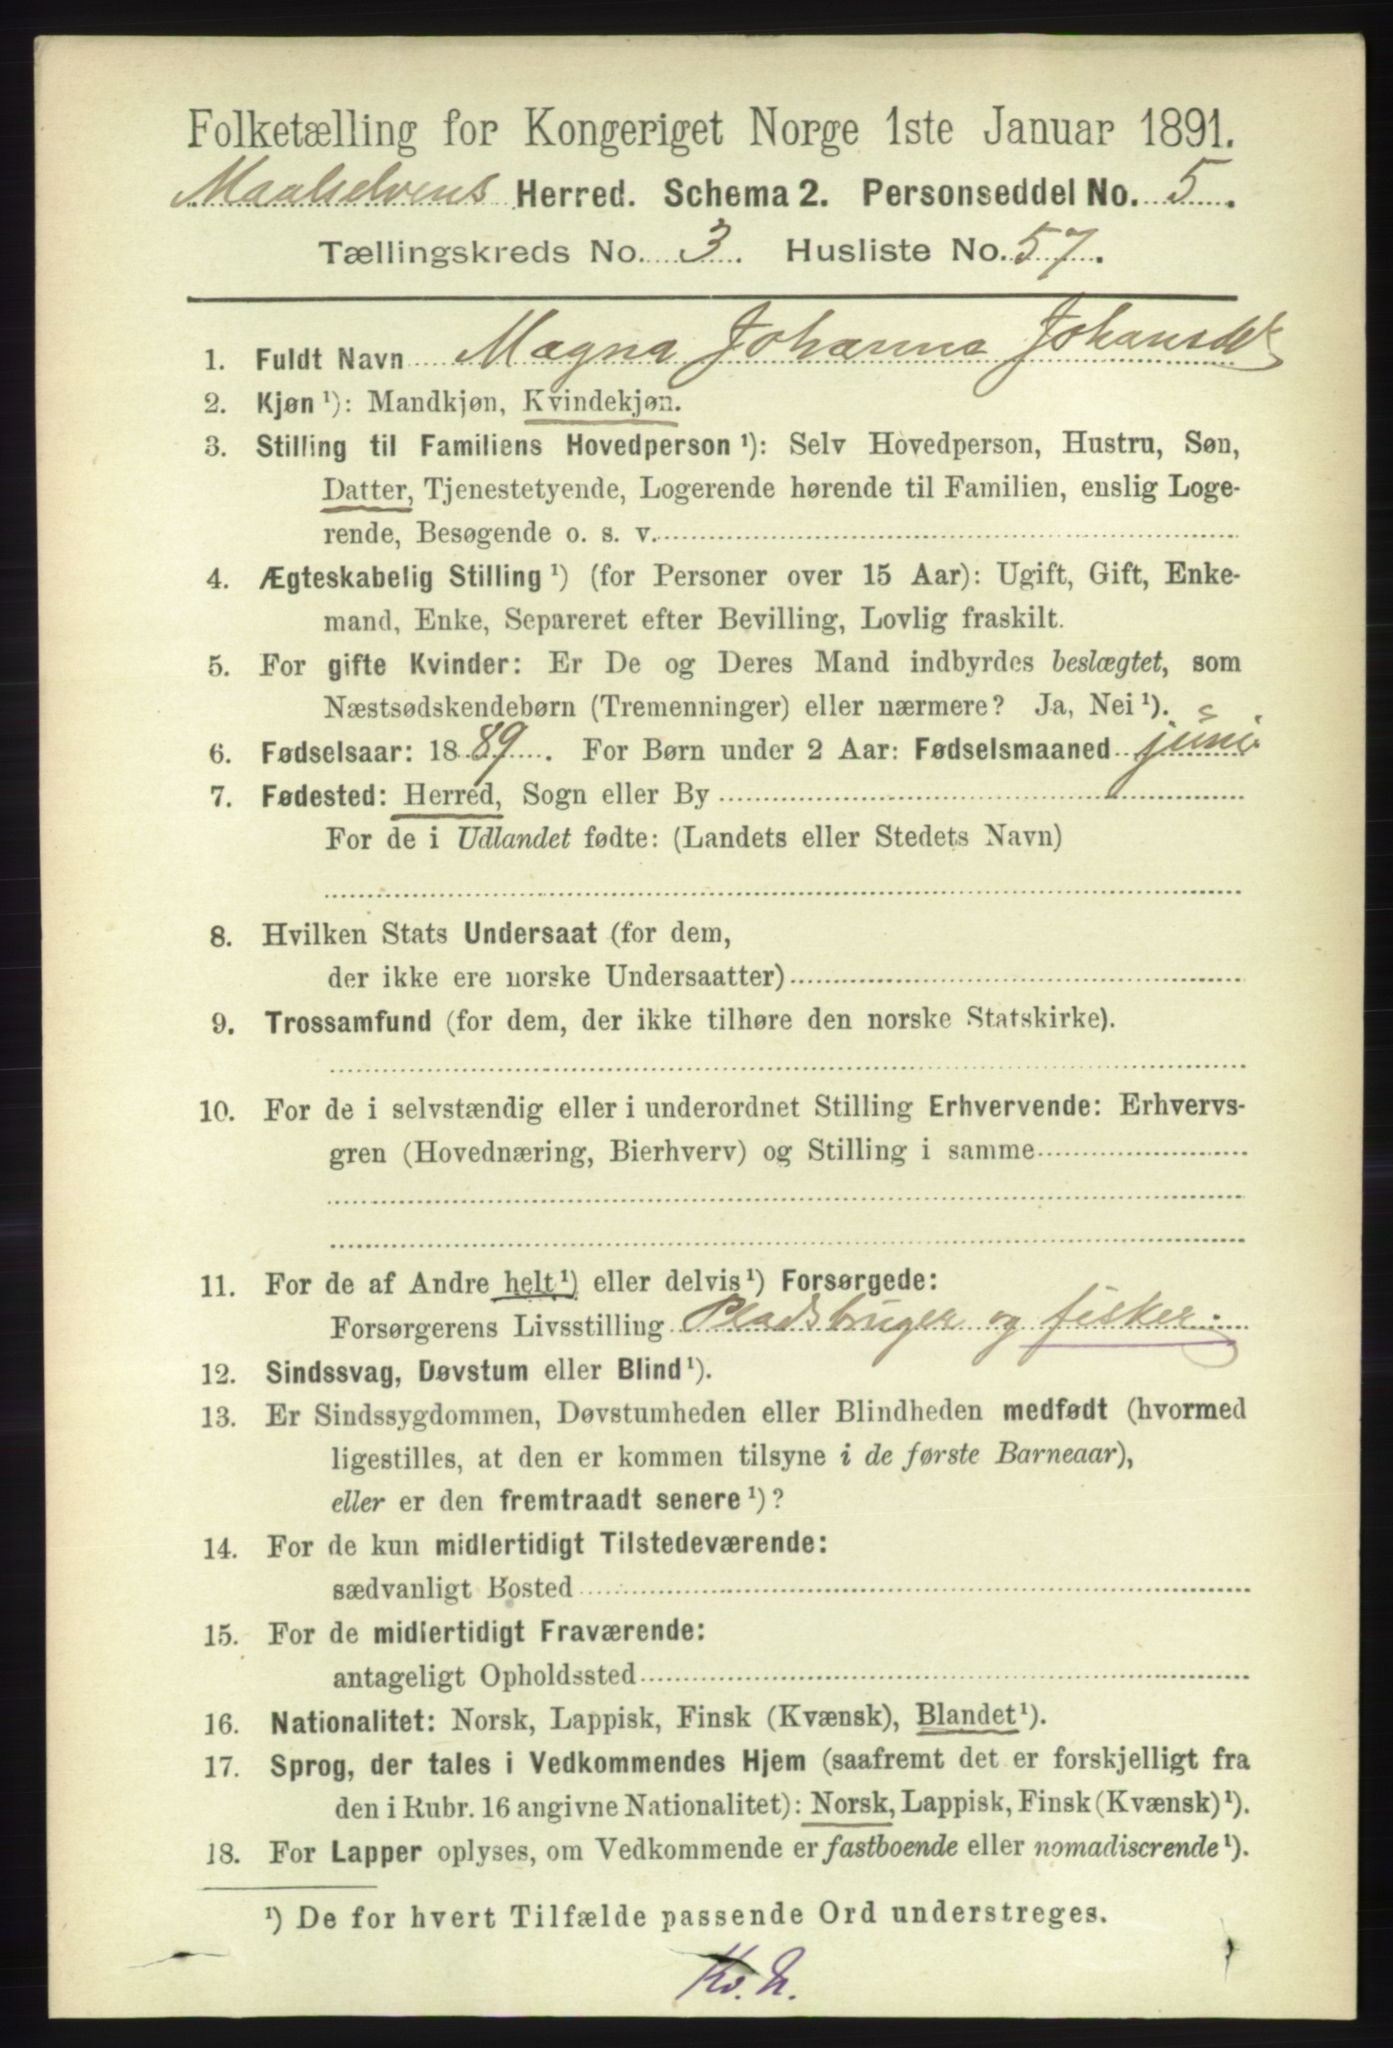 Folketælling for Kongeriget Norge 1ste Januar 1891.
Maalselvens Herred. Schema 2. Personseddel No. 5.
Tællingskreds No. 3. Husliste No. 57.
1. Fuldt Navn Magna Johanna Johansdt
2. Kjøn ¹): Mandkjøn, Kvindekjøn.
3. Stilling til Familiens Hovedperson ¹): Selv Hovedperson, Hustru, Søn,
Datter, Tjenestetyende, Logerende hørende til Familien, enslig Loge-
rende, Besøgende o. s. v.
4. Ægteskabelig Stilling ¹) (for Personer over 15 Aar): Ugift, Gift, Enke-
mand, Enke, Separeret efter Bevilling, Lovlig fraskilt.
5. For gifte Kvinder: Er De og Deres Mand indbyrdes beslægtet, som
Næstsødskendebørn (Tremenninger) eller nærmere? Ja, Nei ¹).
6. Fødselsaar: 1889. For Børn under 2 Aar: Fødselsmaaned juni
7. Fødested: Herred, Sogn eller By
For de i Udlandet fødte: (Landets eller Stedets Navn)
8. Hvilken Stats Undersaat (for dem,
der ikke ere norske Undersaatter)
9. Trossamfund (for dem, der ikke tilhøre den norske Statskirke).
10. For de i selvstændig eller i underordnet Stilling Erhvervende: Erhvervs-
gren (Hovednæring, Bierhverv) og Stilling i samme
11. For de af Andre helt ¹) eller delvis ¹) Forsørgede:
Forsørgerens Livsstilling Pladsbruger og fisker.
12. Sindssvag, Døvstum eller Blind ¹).
13. Er Sindssygdommen, Døvstumheden eller Blindheden medfødt (hvormed
ligestilles, at den er kommen tilsyne i de første Barneaar),
eller er den fremtraadt senere ¹)?
14. For de kun midlertidigt Tilstedeværende:
sædvanligt Bosted
15. For de midlertidigt Fraværende:
antageligt Opholdssted
16. Nationalitet: Norsk, Lappisk, Finsk (Kvænsk), Blandet ¹).
17. Sprog, der tales i Vedkommendes Hjem (saafremt det er forskjelligt fra
den i Rubr. 16 angivne Nationalitet): Norsk, Lappisk, Finsk (Kvænsk) ¹).
18. For Lapper oplyses, om Vedkommende er fastboende eller nomadiserende ¹).
¹) De for hvert Tilfælde passende Ord understreges.
Kv. N.